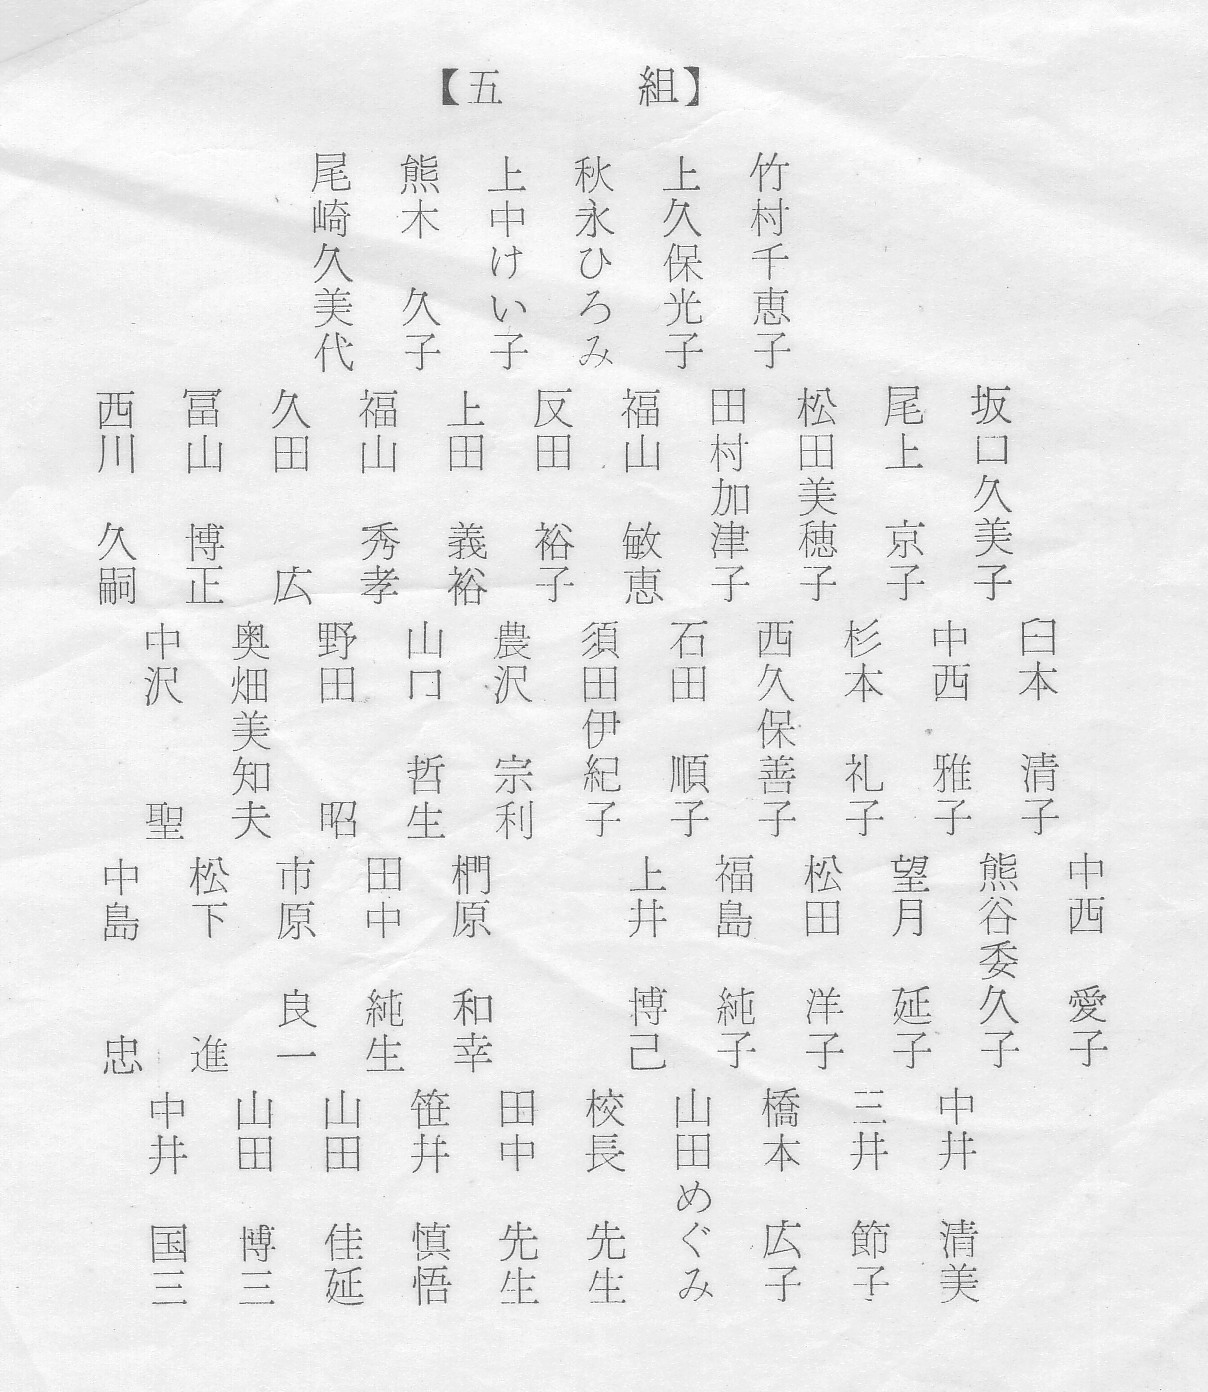 【五　組】
竹村千恵子
上久保光子
秋永ひろみ
上中けい子
熊木　久子
尾崎久美代
坂口久美子
尾上　京子
松田美穂子
田村加津子
福山　敏恵
反田　裕子
上田　義裕
福山　秀孝
久田　広
冨山　博正
西川　久嗣
臼本　清子
中西　雅子
杉本　礼子
西久保善子
石田　順子
須田伊紀子
農沢　宗利
山口　哲生
野田　昭
奥畑美知夫
中沢　聖
中西　愛子
熊谷委久子
望月　延子
松田　洋子
福島　純子
上井　博己
椚原　和幸
田中　純生
市原　良一
松下　進
中島　忠
中井　清美
三井　節子
橋本　広子
山田めぐみ
校長　先生
田中　先生
笹井　慎悟
山田　佳延
山田　博三
中井　国三